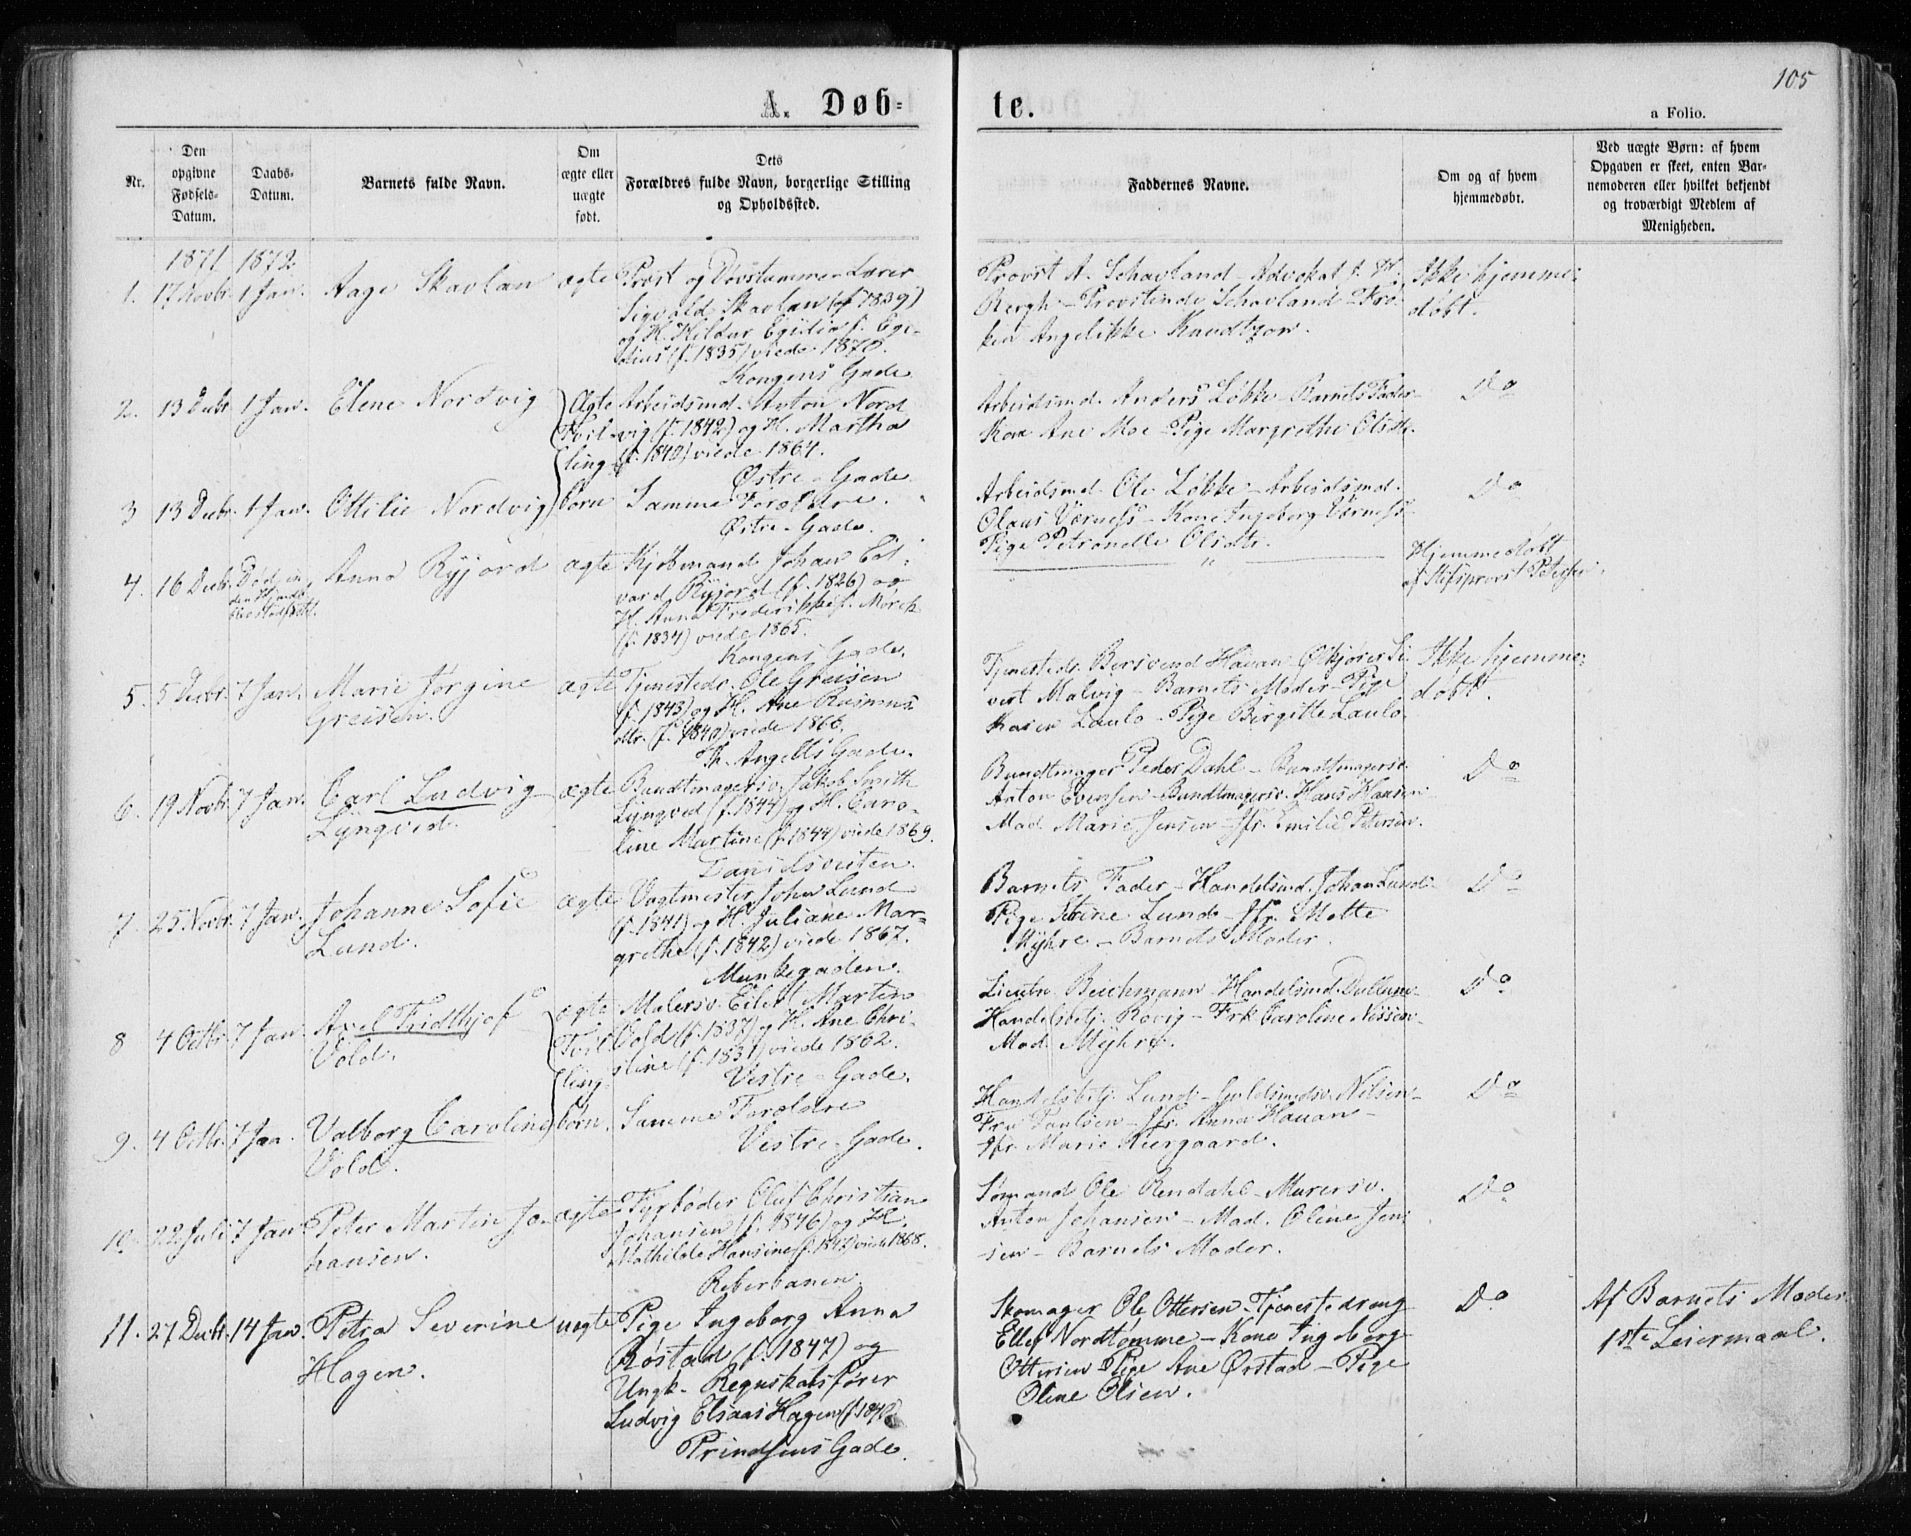 105
A. Døb-
te.
a Folio.
Nr.
Den opgivne Fødsels-Datum.
Daabs-Datum.
Barnets fulde Navn.
Om ægte eller uægte født.
Dets Forældres fulde Navn, borgerlige Stilling og Opholdssted.
Faddernes Navne.
Om og af hvem hjemmedøbt.
Ved uægte Børn: af hvem Opgaven er skeet, enten Barnemoderen eller hvilket bekjendt og troværdigt Medlem af Menigheden.
1871 1872
1. 17 Novbr 1 Jan. Aage Skavlan ægte Præst og Døvstumme Lærer
Sigvald Skavlan (f 1839)
og H. Hildur Egidia f. Ege-
dius (f. 1835) viede 1870.
Kongens Gade
Provst A. Schavland - Advokat
Bergh - Provstinde Schavland - Frø-
ken Angelikke Knudtzon.
Ikke hjemme-
døbt.
2. 13 Decbr 1 Jan. Elene Nordvig Ægte Arbeidsmd. Anton Nord
Tvil- vig (f. 1842) og H. Martha
ling- (f. 1842) viede 1864.
Østre - Gade
Arbeidsmd. Anders Løkke - Barnets Fader
Kone Ane Moe - Pige Margrethe Olsdtr.
Do
3 13 Decbr. 1 Jan. Ottilie Nordvig børn Samme Forældre.
Østre - Gade.
Arbeidsmd. Ole Løkke - Arbeidsmd.
Olaus Værness - Kone Ingeborg Værness
Pige Petronelle Olsdtr.
Do
4. 16 Decbr. Død Anna Ryjord ægte Kjøbmand Johan Ed-
vard Ryjord (f. 1826) og
H. Anna Frederikke f. Mørch
(f. 1834) viede 1865.
Kongens Gade.
"
Hjemmedøbt
af Stiftsprovst Petersen.
5. 5 Decbr. 7 Jan. Marie Jørgine ægte Tjenestedr. Ole Greisen
Greisen. (f. 1843) og H. Ane Rasmus
dtr. (f. 1840) viede 1866.
Th. Angells Gade.
Tjenestedr. Bersvend Hauan - Ølkjører Si-
vert Malvig - Barnets Moder - Pige
Karen Laulo - Pige Birgitte Laulo.
Ikke hjemme-
døbt.
6. 19 Novbr. 7 Jan. Carl Ludvig ægte Bundtmagersv. Jakob Smith
Lyngved. Lyngved (f. 1844) og H. Caro-
line Martine (f. 1844) viede 1869.
Danielsveiten.
Bundtmager Peder Dahl - Bundtmagersv.
Anton Evensen - Bundtmagersv. Hans Hansen
Mad. Marie Jensen - Jfr. Emilie Petersen.
Do
7. 25 Novbr. 7 Jan. Johanne Sofie ægte Vagtmester John Lund
Lund. (f. 1841) og H. Juliane Mar-
grethe (f. 1842) viede 1867.
Munkegaden.
Barnets Fader - Handelsmd. Johan Lund
Pige Stine Lund - Jfr. Mette
Myhre - Barnets Moder.
Do
8 4 Octbr. 7 Jan. Axel Fridthjof ægte Malersv. Eilert Martin
Vold. Tvil- Vold (f. 1837) og H. Ane Chri-
ling- stine (f. 1831) viede 1862.
Vestre - Gade.
Lieutn. Beichmann - Handelsmd. Dullum
Handelsbetj. Rovig - Frk. Caroline Nissen
Mad. Myhre.
Do
9. 4 Octbr. 7 Jan. Valborg Caroline børn. Samme Forældre
Vold. Vestre - Gade.
Handelsbetj. Lund - Guldsmedsv. Nilsen
Fru Paulsen - Jfr. Anna Hauan -
Jfr. Marie Kiergaard.
Do
10. 22 Juli 7 Jan. Peter Martin Jo- ægte Fyrbøder Oluf Christian
hansen. Johansen (f. 1846) og H.
Mathilde Hansine (f. 1842) viede 1868.
Reberbanen
Sømand Ole Rendahl - Murersv.
Anton Johansen - Mad. Oline Jen-
sen - Barnets Moder.
Do
11. 27 Decbr. 14 Jan. Petra Severine uægte Pige Ingeborg Anna
Hagen. Røstad (f. 1847) og
Ungk. Regnskabsfører
Ludvig Elsaas Hagen
Prindsens Gade.
Skomager Ole Ottersen - Tjenestedreng
Ellef Nordtømme - Kone Ingeborg
Ottersen Pige Ane Ørstad - Pige
Oline Olsen.
Do
Af Barnets Moder
1ste Leiermaal.